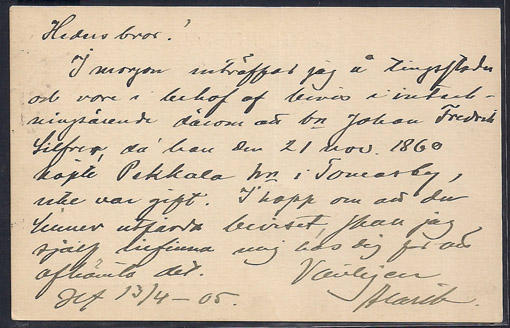 Hedersbror!
I morgon inträffar jag å tingsstaden
och vore i behof af bevis i inteck-
ningsärende därom att bn Johan Fredrik
Silfver, då han den 21 nov. 1860
köpte Pekkala hn i Tomasby,
icke var gift. I hopp om att du
hinner utfärda beviset, skall jag
själf infinna mig hos dig för att
afhämta det. Vänligen
13/4 - 05. Alarik